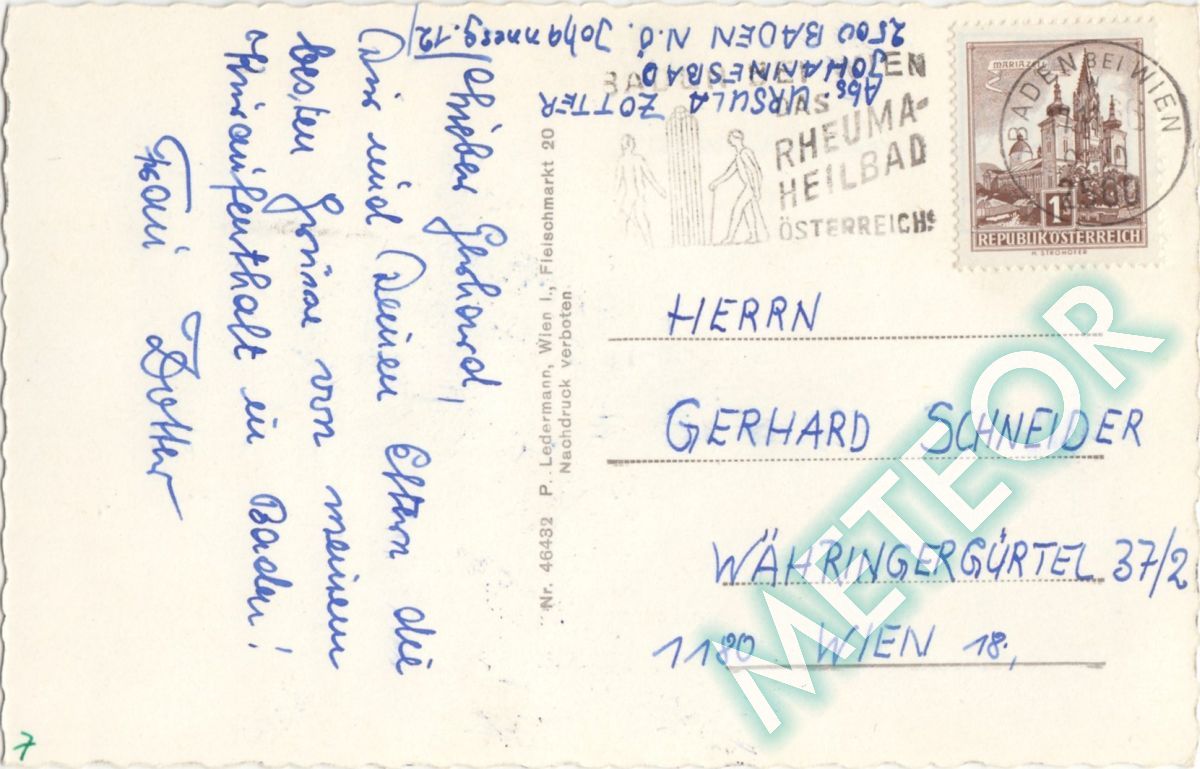 Abs. URSULA ZOTTER
JOHANNESBAD
2500 BADEN N.Ö. Johannesg. 12
Lieber Gerhard,
Dir und Deinen Eltern die
besten Grüsse von meinem
Kuraufenthalt in Baden!
Zotter
Nr. 46432 P. Ledermann, Wien I., Fleischmarkt 20
Nachdruck verboten
BADEN BEI WIEN
DAS
RHEUMA-
HEILBAD
ÖSTERREICHS
BADEN BEI WIEN
2500
MARIAZELL
1S
REPUBLIK ÖSTERREICH
H. STROHOFER
HERRN
GERHARD SCHNEIDER
WÄHRINGERGÜRTEL 37/2
1180 WIEN 18.,
METEOR
7